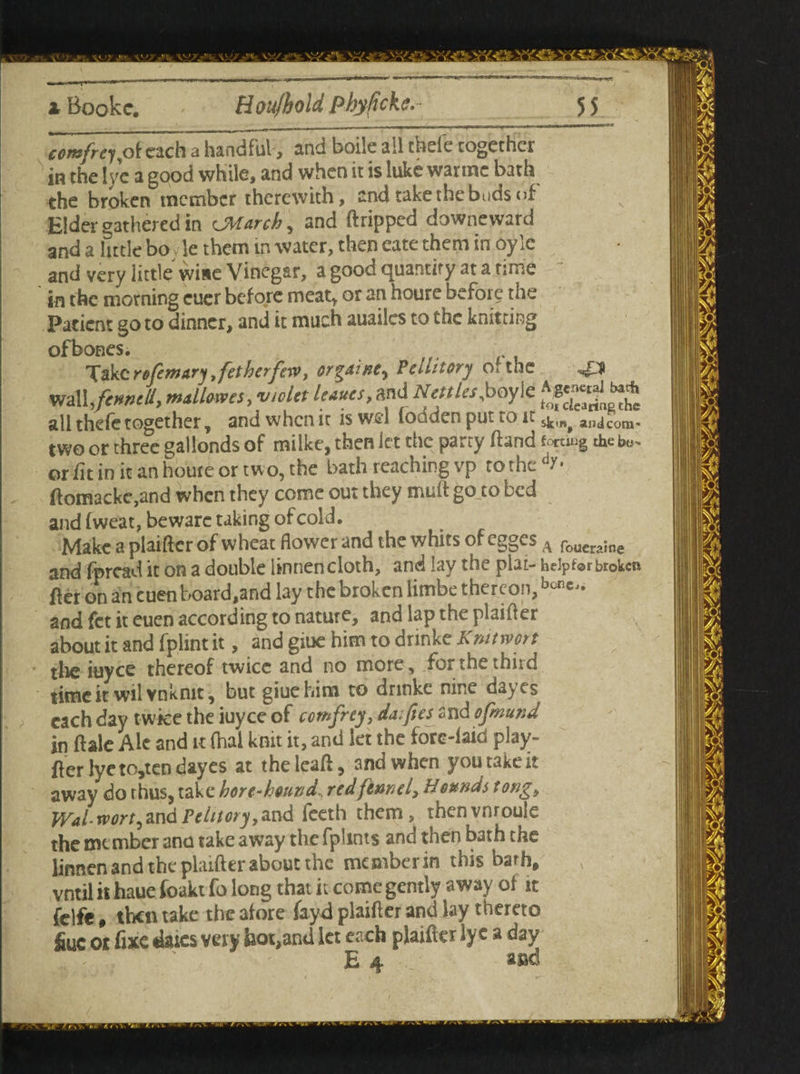 2 Booke. Houſhold Phyſicke. 55
comfrey, of each a handful, and boile all theſe together
in the lye a good while, and when it is luke warme bath
the broken member therewith, and take the buds of
Elder gathered in March, and ſtripped downeward
and a little boyle them in water, then eate them in oyle
and very little wine Vineger, a good quantity at a time
in the morning euer before meat, or an houre before the
Patient go to dinner, and it much auailes to the knitting
of bones.
Take roſemary, fetherfew, orgaine, Pellitory of the
wall, fennell, mallowes, violet leaues, and Nettles, boyle
all theſe together, and when it is wel ſodden put to it
two or three gallonds of milke, then let the party ſtand
or ſit in it an houre or two, the bath reaching vp to the
ſtomacke, and when they come out they muſt go to bed
and ſweat, beware taking of cold.
A general bath
for clearing the
skin, and com-
forting the bo-
dy.
Make a plaiſter of wheat flower and the whits of egges
and ſpread it on a double linnen cloth, and lay the plai-
ſter on an euen board, and lay the broken limbe thereon,
and ſet it euen according to nature, and lap the plaiſter
about it and ſplint it, and giue him to drinke Knitwort
the iuyce thereof twice and no more, for the third
time it wil vnknit, but giue him to drinke nine dayes
each day twice the iuyce of comfrey, daiſies and oſmund
in ſtale Ale and it ſhal knit it, and let the fore-ſaid play-
ſter lye to, ten dayes at the leaſt, and when you take it
away do thus, take hore-hound, red fennel, Hounds tong,
Wal-wort, and Pelitory, and ſeeth them, then vnroule
the member and take away the ſplints and then bath the
linnen and the plaiſter about the member in this bath,
vntil it haue ſoakt ſo long that it come gently away of it
ſelfe, then take the afore ſayd plaiſter and lay thereto
fiue or ſixe daies very hot, and let each plaiſter lye a day
A ſoueraine
help for broken
bones.
E 4 and